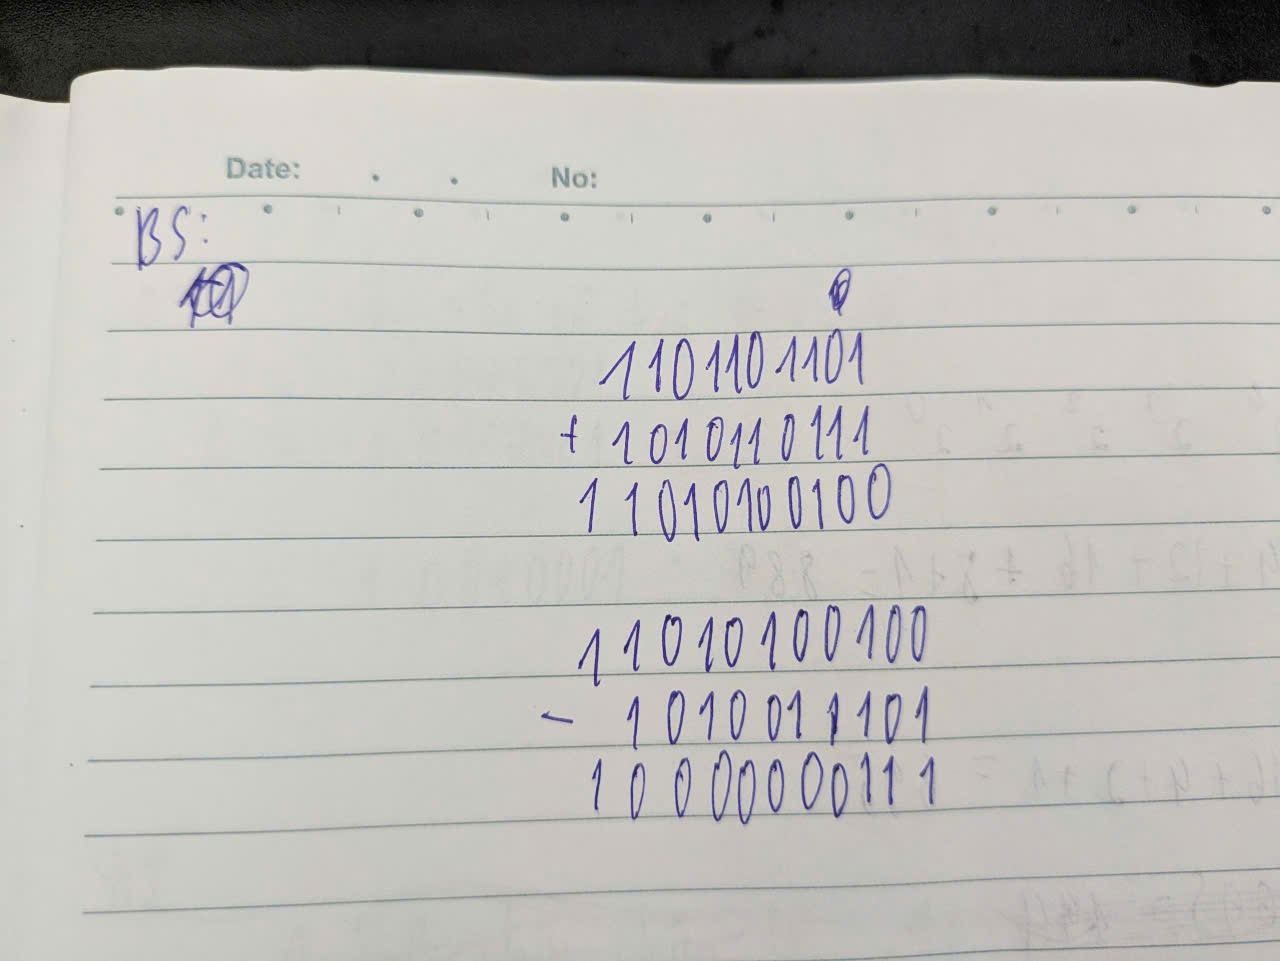 Date: . . No:
BS:
1101101101
+ 1010110111
11010100100
11010100100
- 1010011101
10000000111